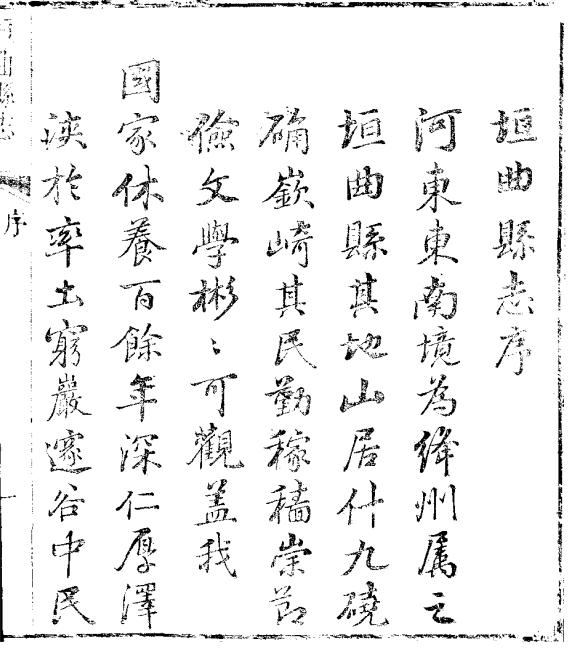 垣曲縣志序
河東東南境為絳州属之
垣曲縣其地山居什九磽
确嶔崎其民勤稼穡崇節
儉文學彬〻可觀盖我
國家休養百餘年深仁厚澤
浹於率土窮巖邃谷中民
序